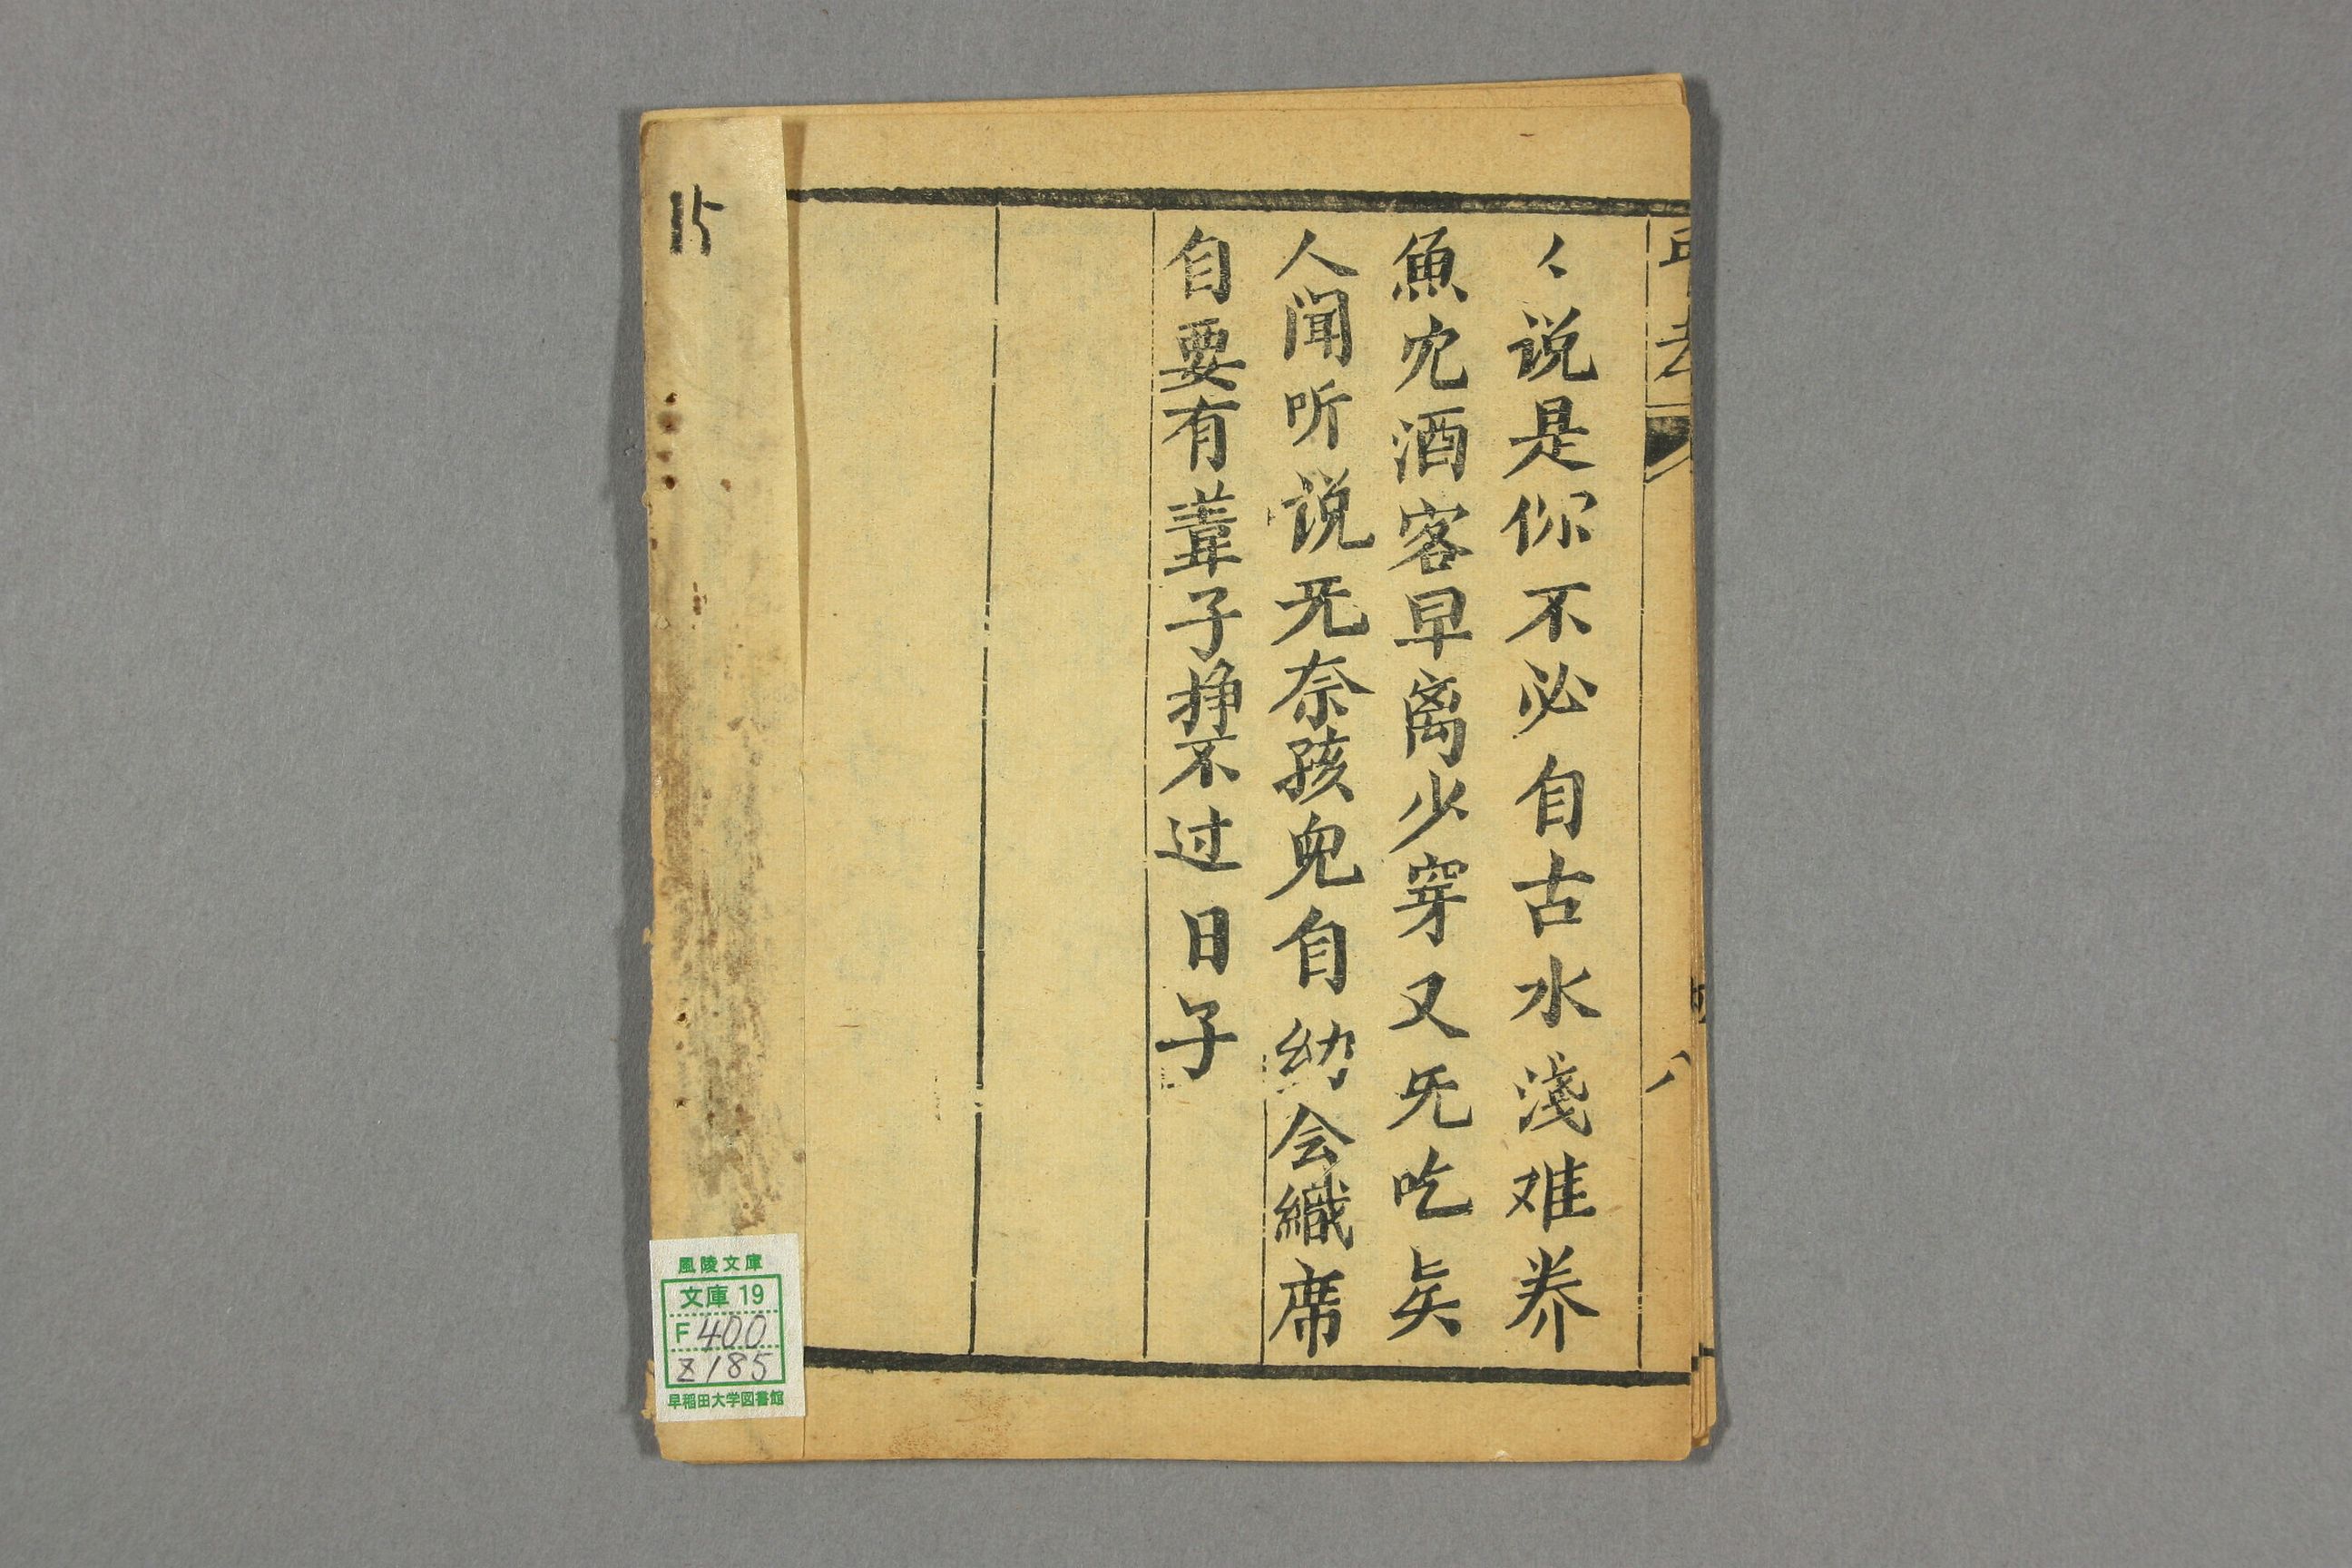 〻说是你不必自古水淺难养
魚冗酒客早离少穿又旡吃矣
人闻听说旡奈孩児自幼会織席
自要有葦子挣不过日子
八
15
風陵文庫
文庫 19
F 400
Z 185
早稲田大学図書館